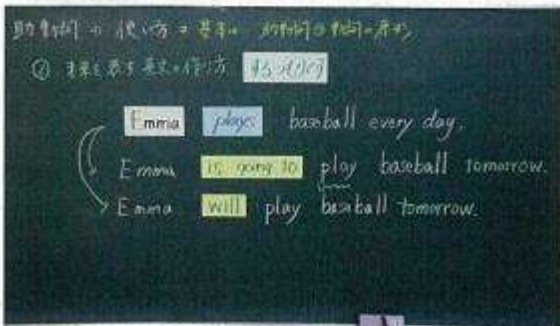 助動詞の使い方 = 基本は 助動詞+動詞の原形
① 未来を表す英文の作り方
Emma plays baseball every day.
Emma is going to play baseball tomorrow.
Emma will play baseball tomorrow.